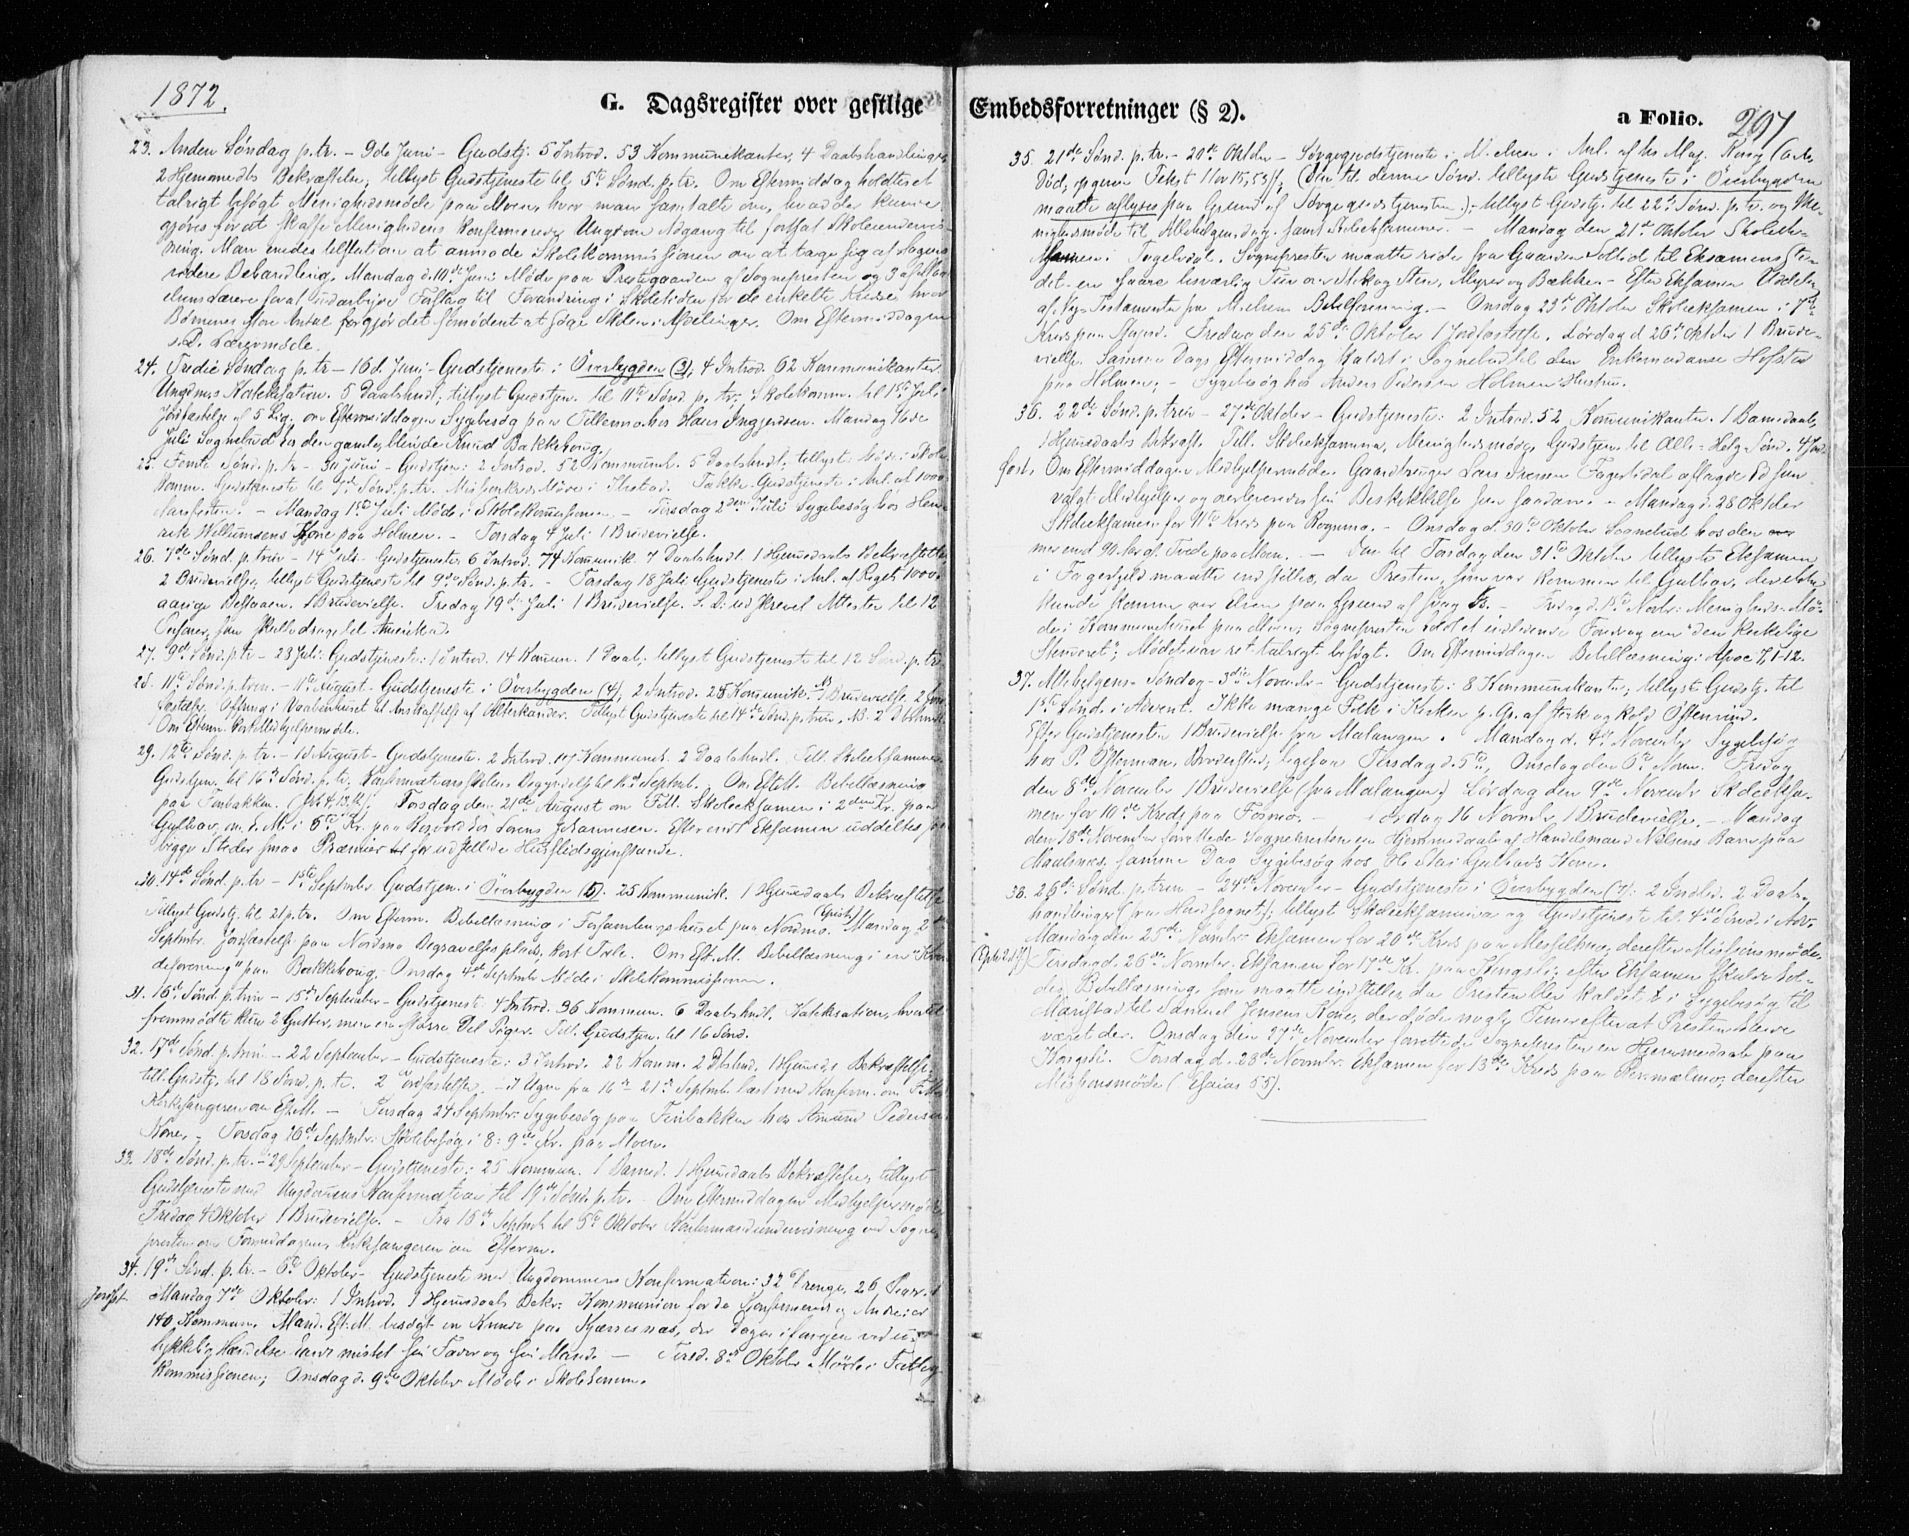 1872.
G. Dagsregister over gestlige Embedsforretninger (§ 2).
a Folio. 297
23. Anden Søndag p. tr. - 9de Juni - Gudstj: 5 Introd. 53 Kommunikanter, 4 Daabshandlinger
2 Hjemmedbs Bekræftelse; tillyst Gudstjeneste til 5te Sønd. p. tr. Om Eftermiddag holdtes et
talrigt besøgt Menighedsmøde paa Moen, hvor man samtalte om, hvad der kunde
gjøres for at skaffe Menighedens konfirmerede Ungdom Adgang til fortsat Skoleundervis
ning. Man enedes tilsist om at anmode Skolekommissionen om at tage sig af Sagens
videre Behandling. Mandag d. 10de Juni Møde paa Prestegaarden af Sognepresten og 3 af Skole
lærere for at udarbeide Forslag til Forandring i Skoletiden for de enkelte Kredse, hvor
Børnenes store Antal forgjør det fornødent at søge Skolen i Afdelinger. Om Eftermiddagen
s. D. Lærermøde.
24. Tredie Søndag p. tr - 16d. Juni - Gudstjeneste i Överbygden (3); 4 Introd. 62 Kommunikanter.
Ungdms Katekisation. 5 Daabshndl; tillyst Gudstjen. til 11te Sønd. p. tr; Skolekomm. til 1ste Juli
Jordfæstelse af 5 Lig; om Eftermiddagen Sygebesøg paa Fillemo hos Hans Ingjersen. Mandag 16de
Juli Sognebud hos den gamle, blinde Knud Bakkehoug.
25. Femte Sønd. p. tr - 30 Juni - Gudstjen: 2 Introd. 52 Kommunk. 5 Daabshndl. tillyst Møde i Skole
komm. Gudstjeneste til 7de Sønd. p. tr. Missionskreds Møde i Ihstad. Takke-Gudstjeneste i Anl. af 1000
aarsfesten. - Mandag 1ste Juli Møde i Skolekommissionen. - Tirsdag 2den Juli Sygebesøg hos Hen
rik Willumsens Kone paa Holmen. - Torsdag 4 Juli 1 Brudevielse.
26. 7de Sønd. p. trin - 14 Juli - Gudstjeneste 6 Introd. 74 Kommunik. 7 Daabshndl. 1 Hjemdaabs Bekræftelse
2 Brudevielser, tillyst Gudstjeneste til 9de Sønd. p. tr. - Torsdag 18 Juli Gudstjeneste i Anl. af Rigets 1000
aarige Bestaaen. 1 Brudevielse. Fredag 19de Juli 1 Brudevielse. S. D. udskrevet Attester til 12
Personer, som skulle drage til Amerika.
27. 9de Sønd. p. tr - 28 Juli. Gudstjeneste: 1 Introd. 14 Komm. 1 Daab, tillyst Gudstjeneste til 12 Sønd. p. tr.
28. 11te Sønd. p. trin. - 11te August - Gudstjeneste i Överbygden (4); 2 Introd. 28 Kommunik. 1 Brudevielse, 2 Jord
fæstelse. Offring i Vaabenhuset til Anskaffelse af Alterkander. Tillyst Gudstjeneste til 14de Sønd. p. trin, NB. 2 Dbshndl.
Om Efterm. Medhjelpermøde.
29. 12te Sønd. p. tr. - 18 August - Gudstjeneste. 2 Introd. 107 Kommunik. 2 Daabshndl. Till. Skoleeksamener
Gudstjen. til 16de Sønd. p. tr; Konfirmationsskolens Begyndelse til 16d September. Om EftM. Bibellæsning
paa Finbakken. Torsdag den 21de August om Form. Skoleeksamen i 2den Kr. paa
Gulhav, om E. M. i 6te Kr. paa hos Sørens Johannesen. Efter endt Eksamen uddeltes paa
begge Steder smaa Præmier for udstillede Husflidsgjenstande.
30. 14de Sønd. p. tr - 1ste September Gudstjen. i Överbygden (5). 25 Kommunik. 1 Hjemdaabs Bekræftelse
Tillyst Gudstj. til 21 p. tr. Om Efterm. Bibellæsning i Forsamlingshuset paa Nordmo. Mandag 2den
Septmbr. Jordfæstelse paa Nordmo Begravelsesplads, kort Tale. Om Eft. M. Bibellæsning i en "Kvin
deforening" paa Bakkehoug. Onsdag 4de Septmbr Møde i Skolekommissionen.
31. 16de Sønd. p. trin - 15de September - Gudstjeneste 4 Introd. 36 Kommun. 6 Daabshndl. Katekisation, hvortil
fremmødte kun 2 Gutter, men en Masse Del Piger. Till. Gudstjen. til 16 Sønd.
32. 17de Sønd. p. trin - 22 September - Gudstjeneste: 3 Introd. 22 Komm. 2 Dbshnd. 1 Hjemdbs Bekræftelse
till. Gudstj. til 18 Sønd. p. tr. 2 Jordfæstelse. - I Ugen fra 16de 21de Septmbr. læst med Konfirm. om
Kirkesangeren om EftM. - Tirsdag 24 Septmbr: Sygebesøg paa Finbakken hos Amund Pedersens
Kone. - Torsdag 26de Septmbr. Skolebesøg i 8: 9de Kr. paa Moen.
33. 18de Sønd. p. tr. - 29 September - Gudstjeneste: 25 Kommun. 1 Barnd. 1 Hjemdaabs Bekræftelse; tillyst
Gudstjeneste med Ungdommens Konfirmation til 19de Sønd. p. tr. - Om Eftermiddagen Medhjelpermøde
Fredag 4 Oktober 1 Brudevielse. - Fra 16de Septmbr til 5te Oktober Konfirmandundervisning ved Sogne
presten om Formiddagene, Kirkesangeren om Efterm.
34. 19de Sønd. p. tr. - 6te Oktober - Gudstjeneste med Ungdommens Konfirmation: 32 Drenge, 26 Piger. 1
Jordfst. Mandag 7de Oktober: 1 Introd. 1 Hjemdaabs Bekr. Kommunion for de Konfirmerede og Andre: er
140 Kommun. Mand. Eft: M. besøgt en Kvinde paa Kjærresnæs, der Dagen iforveien ved u-
lykkelig Hændelse havde mistet sin Fader og sin Mand. - Tirsd. 8de Oktober Møde i Fattig
kommissionen; Onsdag d. 9de Oktober Møde i Skolekomm.
35. 21de Sønd. p. tr. - 20de Oktober - Sørgegudstjeneste i Anl. af hs Maj. Kong Carls
Død, opgiven Tekst 1 Kor 15, 53 ff; (den til denne Sønd. tillyste Gudstjeneste i Överbygden
maatte aflyses paa Grund af Sørgegudstjenesten); tillyst Gudstj. til 22de Sønd. p. tr. og Me-
nighedsmøde til Allehelgensdag samt Skoleeksamener. - Mandag den 21de Oktober Skoleek-
samen i Fagerlidal. Sognepresten maatte ride fra Gaarden Soltid til Eksamensste-
det - en svare besværlig Tur over Stok og Sten, Myrer og Bække - Efter Eksamen Uddeling
af Ny-Testamente fra Bibelforening. - Onsdag 23de Oktober Skoleeksamen i 7de
Kreds paa Fredag den 25de Oktober 1 Jordfæstelse. Lørdag d 26de Oktbr 1 Brude-
vielse. Samme Dags Eftermiddag kaldt i Sognebud til den Enkemadame Hofstad
paa Holmen; - Sygebesøg hos Anders Pedersen Holmen Hustru.
36. 22de Sønd. p. trin - 27de Oktober - Gudstjeneste: 2 Introd. 52 Kommunikanter. 1 Barnedaab,
1 Hjemdaabs Bekræft. Till. Skoleeksamina, Menighedsmøde, Gudstjen. til Alle-Helg. Sønd. 4 Jord
fæst. Om Eftermiddagen Medhjelpermøde. Gaardbruger Lars Iversen Fagerlidal aflagde Ed som
valgt Medhjelper og overleveredes sin Beskikkelse som saadan. - Mandag d. 28 Oktober
Skoleeksamen for 11te Kreds paa Rognmo. - Onsdag d. 30te Oktober Sognebud hos den
mer end 90 Aar gl. Tude paa Moen. - Den til Torsdag den 31te Oktober tillyste Eksamen
i Fagerfjeld maatte indstilles, da Presten, som var kommen til Gulhav, der ikke
kunde komme over Elven paa Grund af svag Is. - Fredag d. 1ste Novbr: Menigheds-Mø-
de i Kommunelokalet paa Moen; Sognepresten holdt et indledende Foredrag om "den kirkelige
Stemmeret"; Mødet var ret talrigt besøgt. Om Eftermiddagen Bibellæsning: Apoc 7, 1-12.
37. Allehelgens-Søndag - 3die November - Gudstjeneste: 8 Kommunikanter; tillyst Gudstj. til
1ste Sønd. i Advent. Ikke mange Folk i Kirken p. Gr. af stærk og kold Østenvind.
Efter Gudstjenesten 1 Brudevielse fra Malangen. Mandag d. 4de November Sygebesøg
hos P. Østerman, ligesaa Tirsdag d. 5te, Onsdag den 6te Novm. Fredag
den 8de November 1 Brudevielse (fra Malangen) Lørdag den 9de November Skoleeksa-
men for 10de Kreds paa Fosmo. - Lørdag 16 Novmbr. 1 Brudevielse. - Mandag
den 18de November forrettede Sognepresten en Hjemmedaab af Handelsmand Nilsens Barn paa
Maalsnes, samme Dag Sygebesøg hos Ole Gulhavs Kone.
38. 26de Sønd. p. trin - 24de November - Gudstjeneste i Överbygden (7): 2 Introd. 2 Daabs-
handlinger (fra Hovedsognet); tillyst Skoleeksamina og Gudstjeneste til 4de Sønd. i Adv.
Mandag den 25de Novmbr. Eksamen for 20de Kreds paa Messelhou, derefter Missionsmøde,
(Eph: 2, 19). Tirsdag d. 26de Novmbr. Eksamen for 17de Kr. paa Kongsli; efter Eksamen skulde hol-
des Bibellæsning, som maatte indstilles, da Presten blev kaldet i Sygebesøg til
Mæristad til Samuel Jensens Kone, der døde nogle Timer efterat Presten havde
været der. Onsdag den 27de November forrettede Sognepresten en Hjemmedaab paa
Kongsli. Torsdag d. 28de Novmbr. Eksamen for 13de Kreds paa derefter
Missionsmøde (Esaias 55).